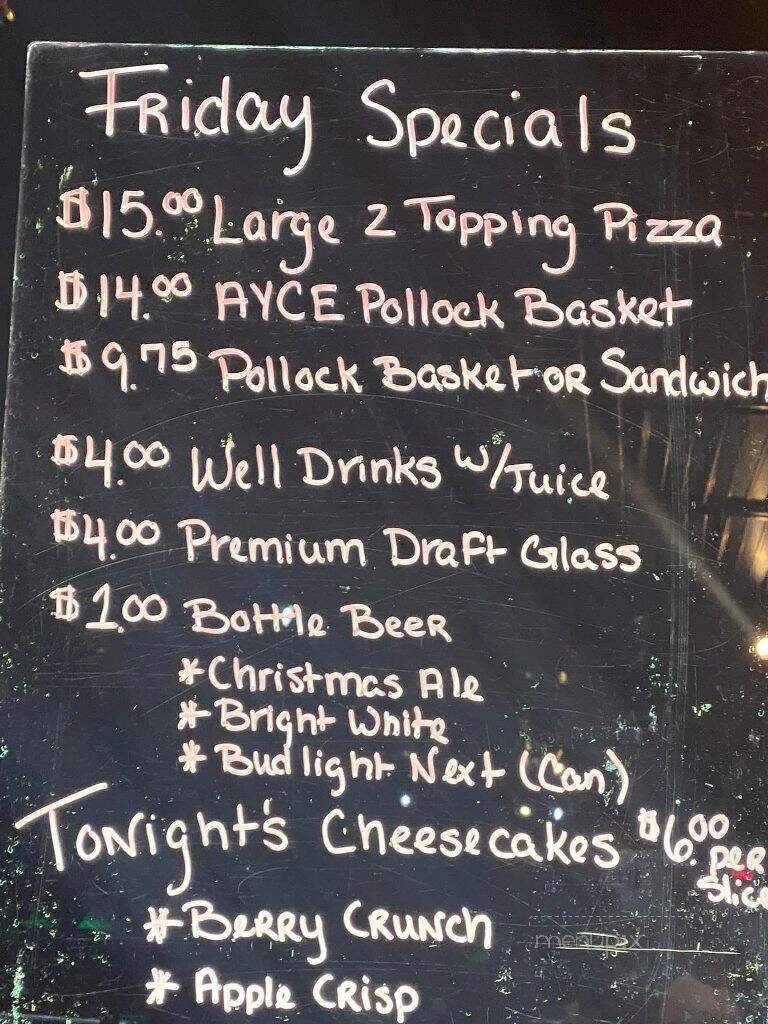 Friday Specials
$15.00 Large 2 Topping Pizza
$14.00 AYCE Pollock Basket
$9.75 Pollock Basket or Sandwich
$4.00 Well Drinks w/Juice
$4.00 Premium Draft Glass
$1.00 Bottle Beer
*Christmas Ale
*Bright White
*Bud light Next (Can)
Tonight's Cheesecakes $6.00 per slice
*Berry Crunch
*Apple Crisp